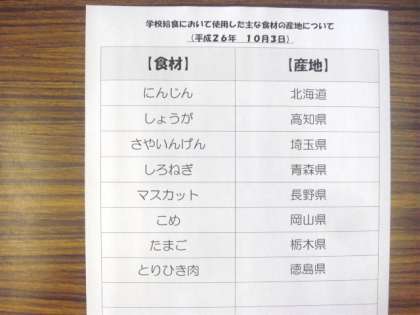 学校給食において使用した主な食材の産地について
（平成２６年　１０月３日）
【食材】　【産地】
にんじん　北海道
しょうが　高知県
さやいんげん　埼玉県
しろねぎ　青森県
マスカット　長野県
こめ　岡山県
たまご　栃木県
とりひき肉　徳島県